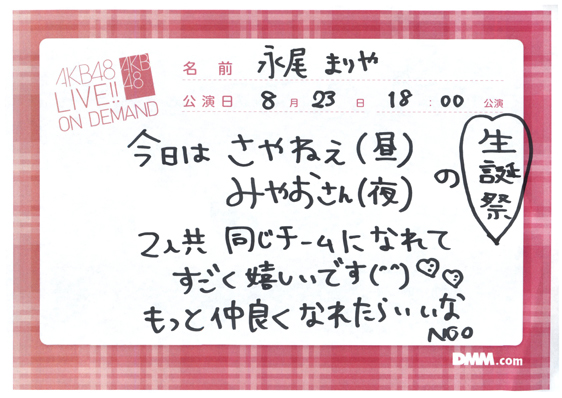 AKB48
LIVE!!
ON DEMAND
AKB
48
名前 永尾 まりや
公演日 8月23日 18:00 公演
今日は さやねぇ(昼)
みやおさん(夜)
の
生誕祭
2人共 同じチームになれて
すごく嬉しいです(^^)♡♡
もっと仲良くなれたらいいな
NGO
DMM.com